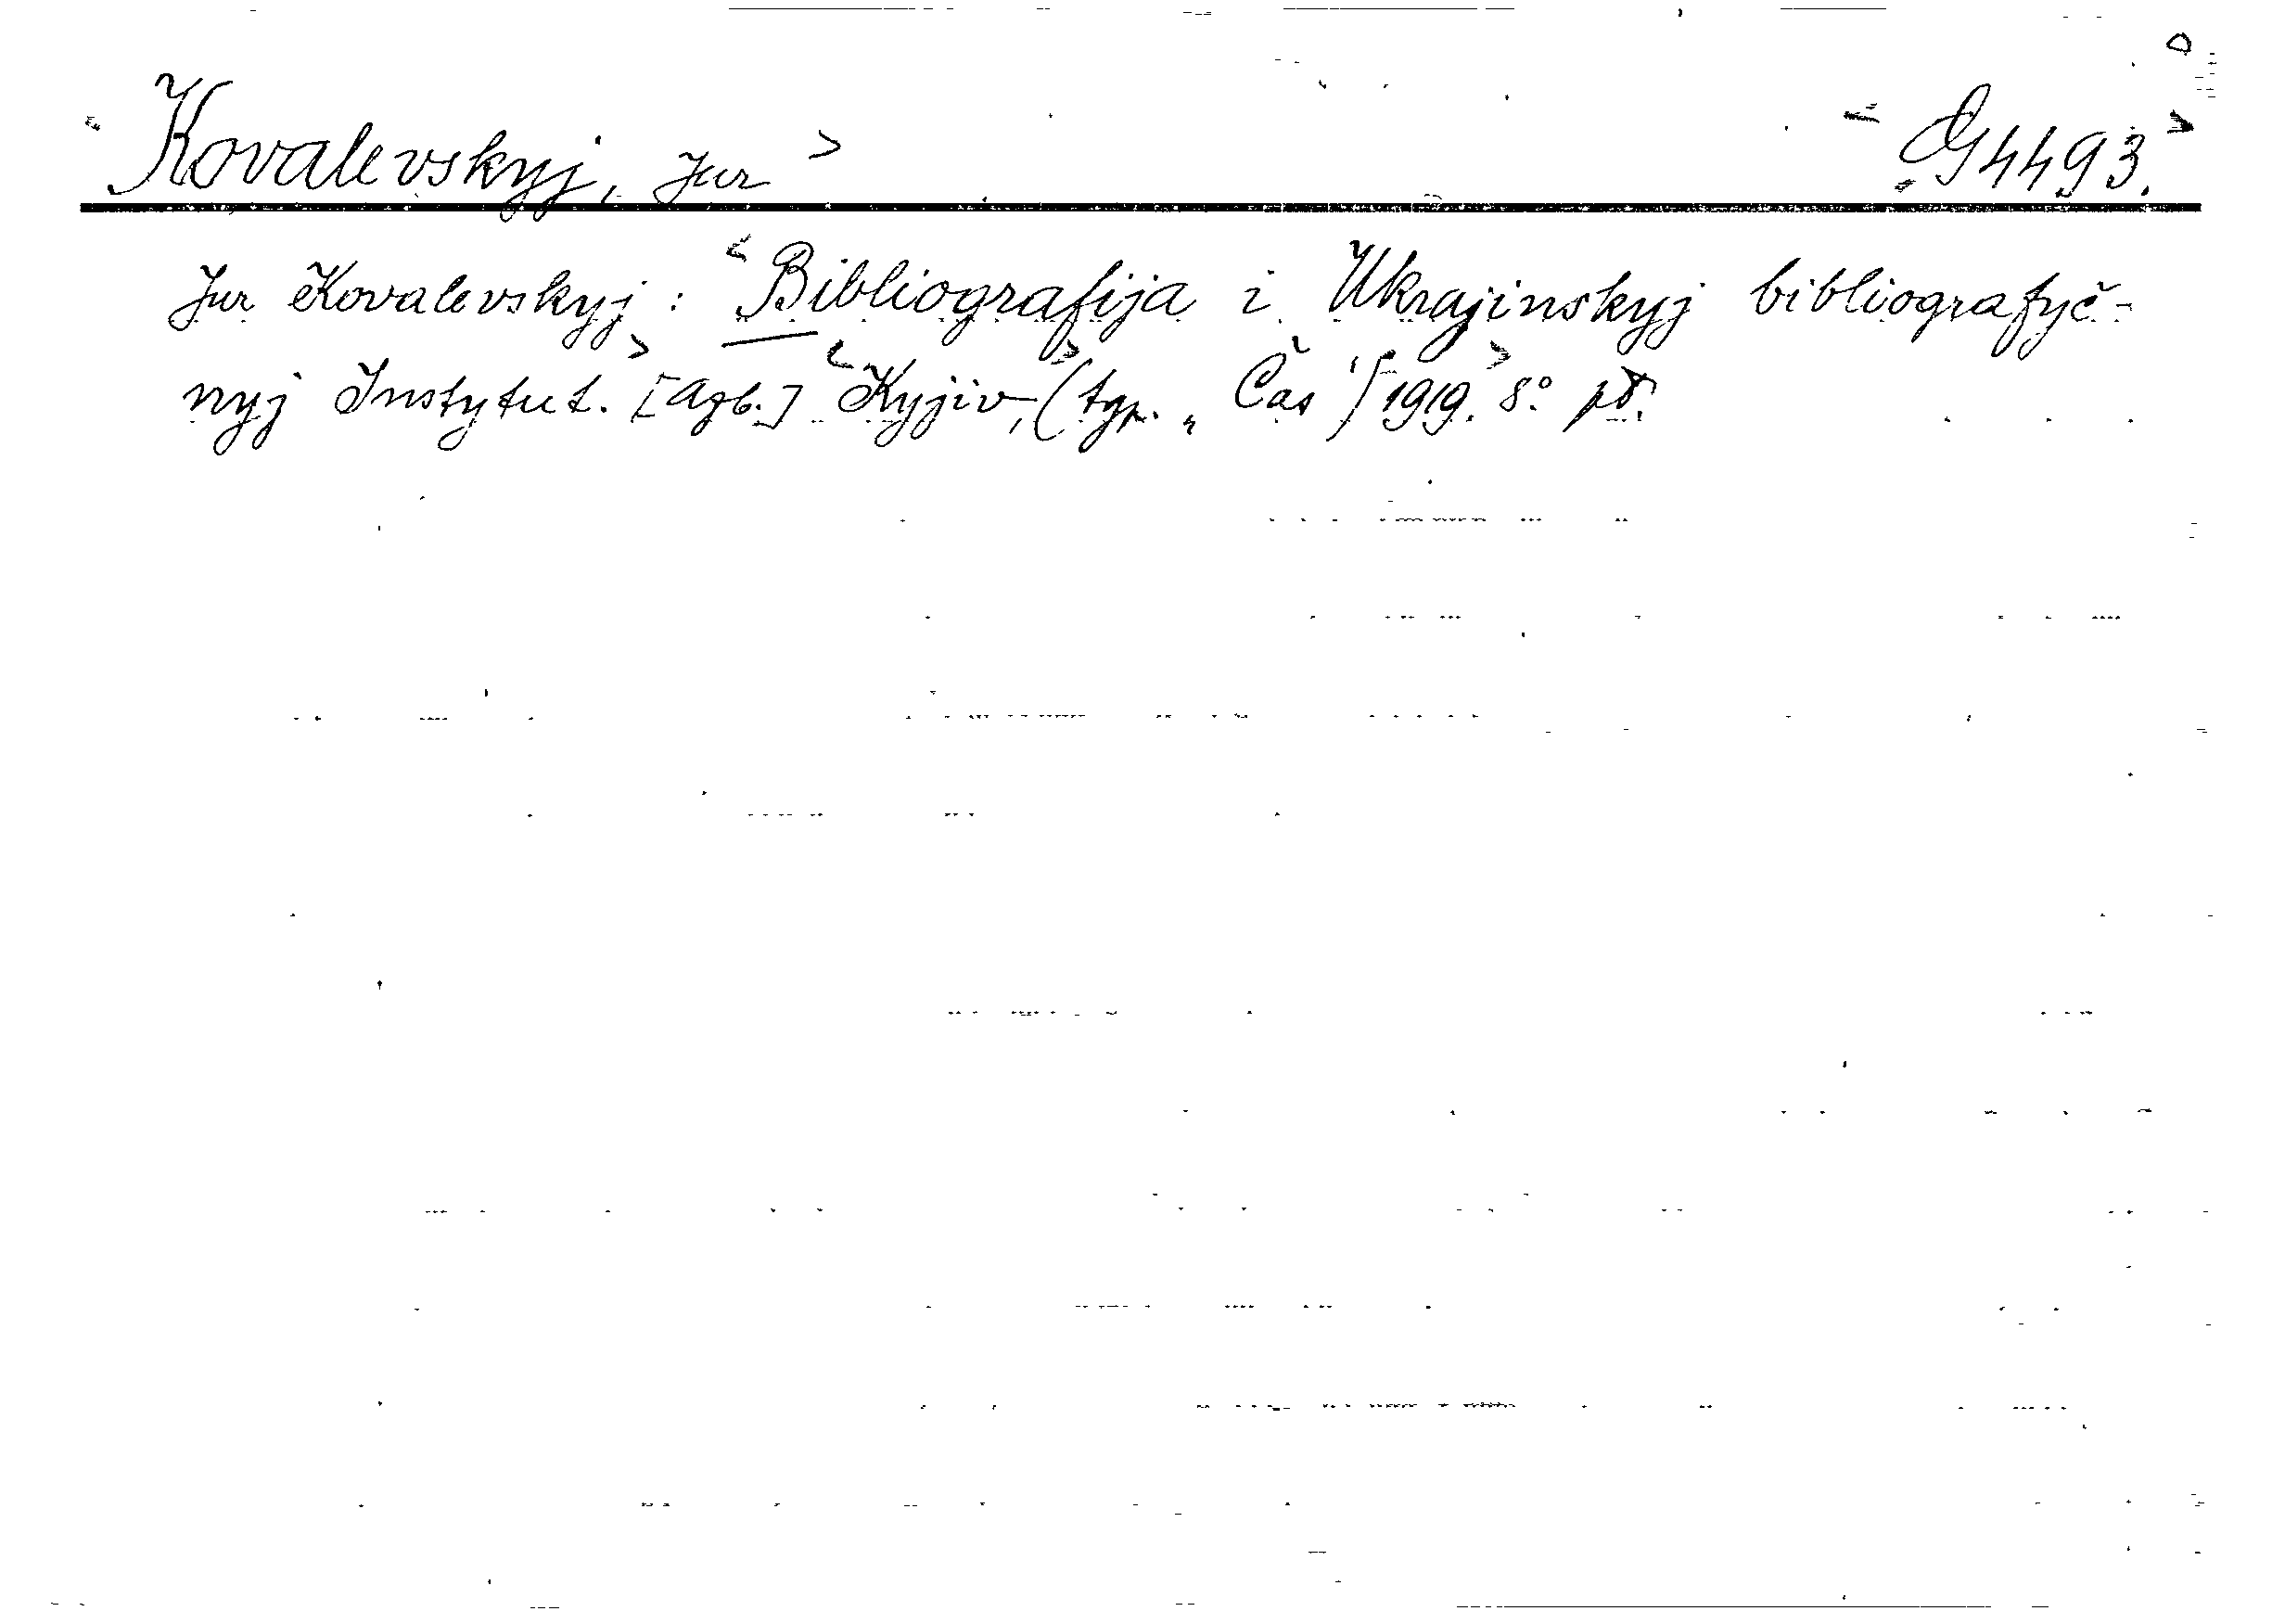 <Kovalevskyj, Jur> <G 4493.>
Jur Kovalevskyj: <Bibliografija i Ukrajinskyj bibliografyč-
nyj Instytut.> [Agb.] <Kyjiv, (typ. „Čas“) 1919.> 8° pt.